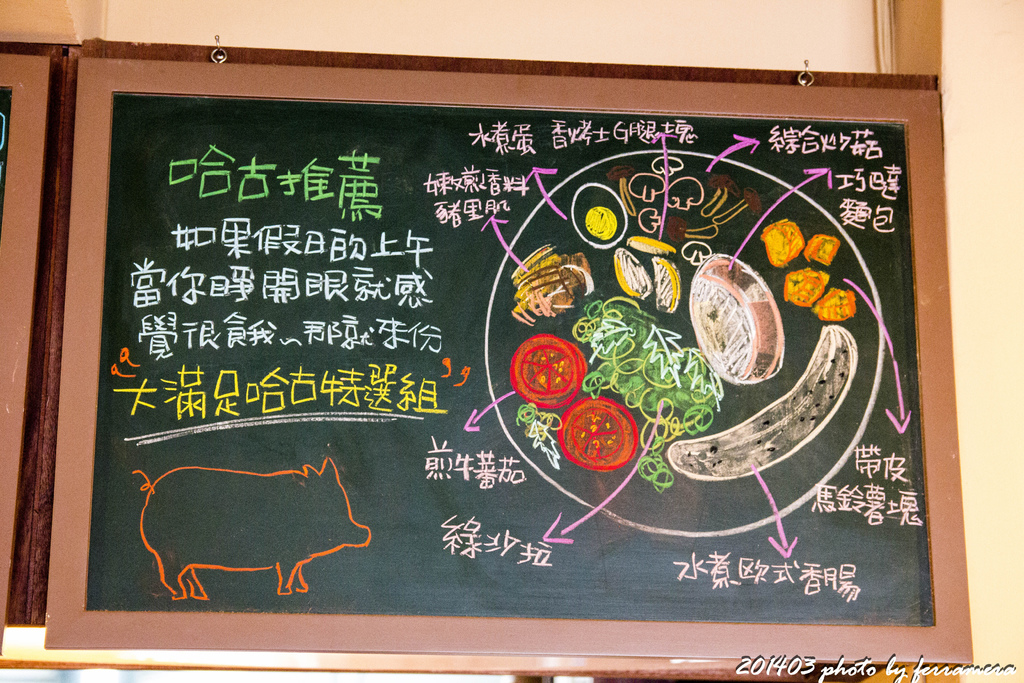 哈古推薦
如果假日的上午
當你睜開眼就感
覺很餓我~那就來份
"大滿足哈古特選組"
水煮蛋
香烤土G腿塊
綜合炒菇
嫩煎香料
豬里肌
巧達
麵包
煎牛蕃茄
綠沙拉
水煮欧式香腸
帶皮
馬鈴薯塊
201403 photo by ferramera